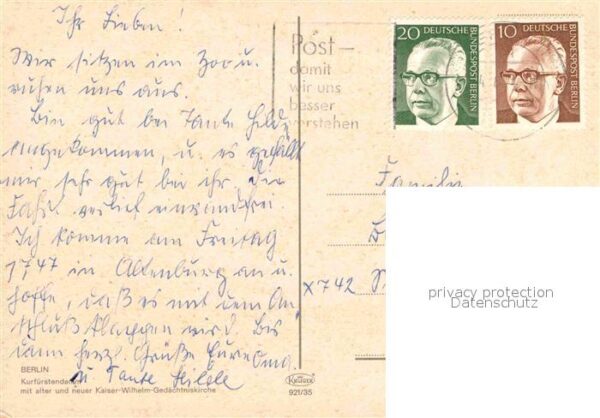 Ihr Lieben!
Wir sitzen im Zoo u.
ruhen uns aus.
Bin gut bei Tante Hilde
angekommen, u. es gefällt
mir sehr gut bei ihr. Die
Fahrt verlief einwandfrei.
Ich komme am Freitag
17,47 in Altenburg an u.
hoffe, daß es mit dem An-
schluß klappen wird. Bis
dann herzl. Grüße Eure Oma
u Tante Hilde
BERLIN
Kurfürstendamm
mit alter und neuer Kaiser-Wilhelm-Gedächtniskirche
Post –
damit
wir uns
besser
verstehen
20 DEUTSCHE BUNDESPOST BERLIN
10 DEUTSCHE BUNDESPOST BERLIN
Familie
X742
privacy protection
Datenschutz
Krüger
921/35